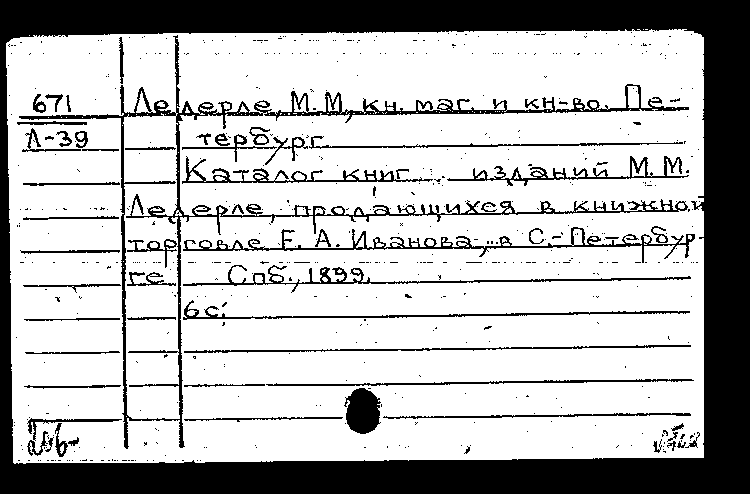 671 Ледерле, М. М., кн. маг. и кн-во. Пе-
Л-39 тербург.
Каталог книг... изданий М. М.
Ледерле, продающихся в книжной
торговле Е. А. Иванова, в С.-Петербур-
ге Спб., 1899.
6 с.